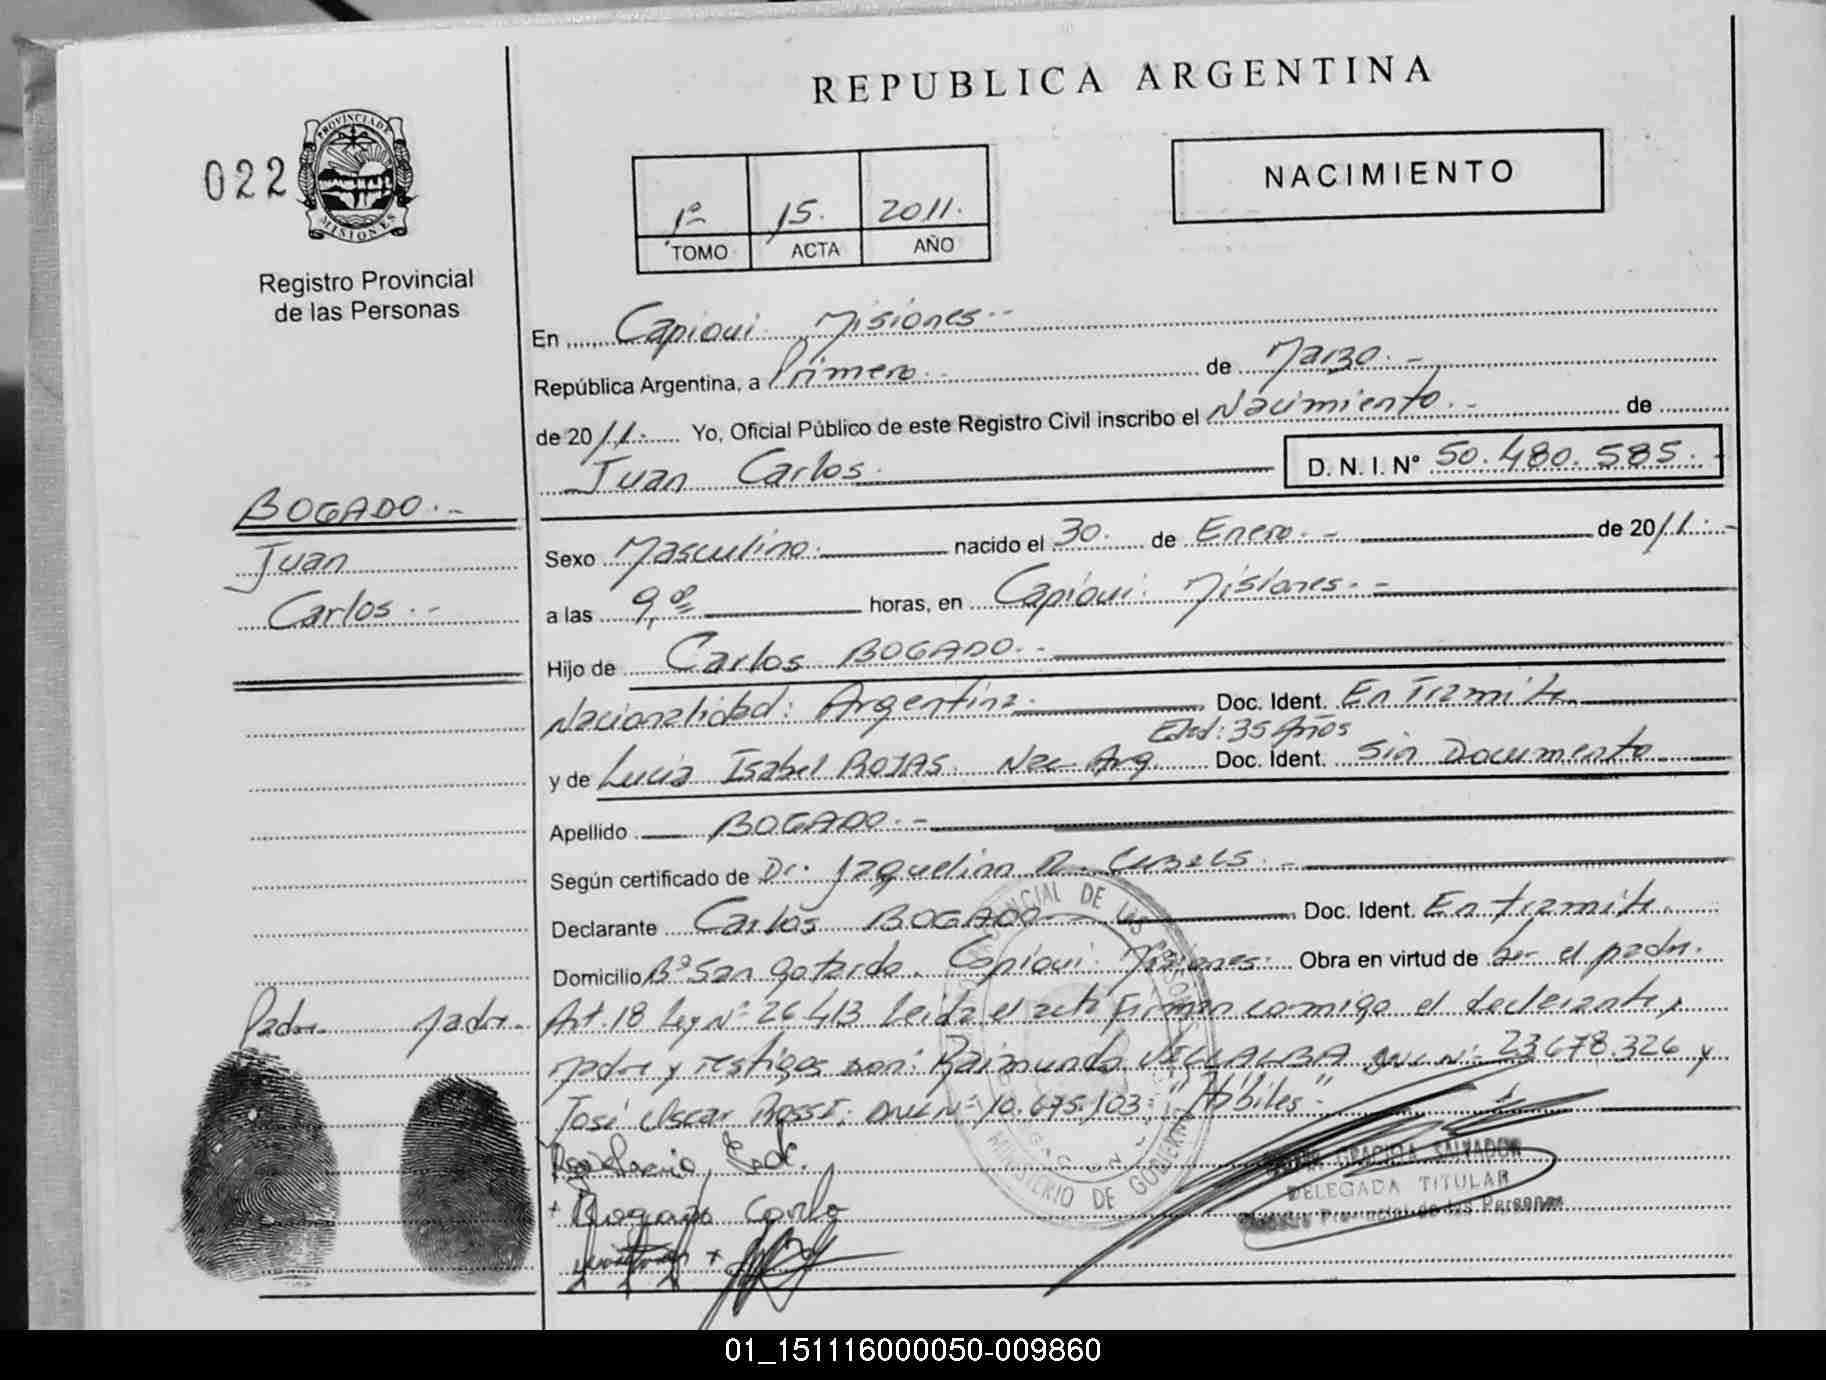 REPUBLICA ARGENTINA
022
PROVINCIA DE
MISIONES
Registro Provincial
de las Personas
1º 15. 2011.
TOMO ACTA AÑO
NACIMIENTO
En Capioui Misiones.-
República Argentina, a Primero.- de Marzo.-
de 2011.- Yo, Oficial Público de este Registro Civil inscribo el Nacimiento.- de
Juan Carlos. D. N. I. Nº 50.480.585.-
BOGADO.-
Juan
Carlos.-
Sexo Masculino. nacido el 30. de Enero.- de 2011.-
a las 9,00 horas, en Capioui. Misiones.-
Hijo de Carlos BOGADO.-
Nacionalidad: Argentina. Doc. Ident. En Tramite
Edad: 35 Años
y de Lucia Isabel ROJAS. Nac. Arg. Doc. Ident. Sin Documento
Apellido BOGADO.-
Según certificado de Dr. Jaquelina R.
Declarante Carlos BOGADO Doc. Ident. En tramite.
Domicilio Bº San Gotardo. Capioui. Misiones. Obra en virtud de ser el padre.
Padre Madre.
Art. 18 Ley Nº 26413 Leida el acta Firman conmigo el declarante,
Madre y testigos son: Raimundo VILLALBA DNI Nº 23.678.326 y
José Oscar ROSSI: DNI Nº 10.675.103: "Hábiles".
Bogado Carlo
PROVINCIAL DE LAS PERSONAS
MINISTERIO DE GOBIERNO
GRACIELA SALVADOR
DELEGADA TITULAR
Registro Provincial de las Personas
01_151116000050-009860